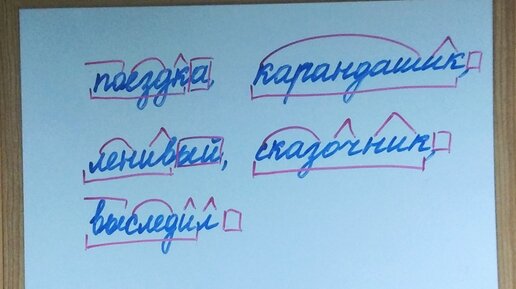 поездка, карандашик,
ленивый, сказочник,
выследил